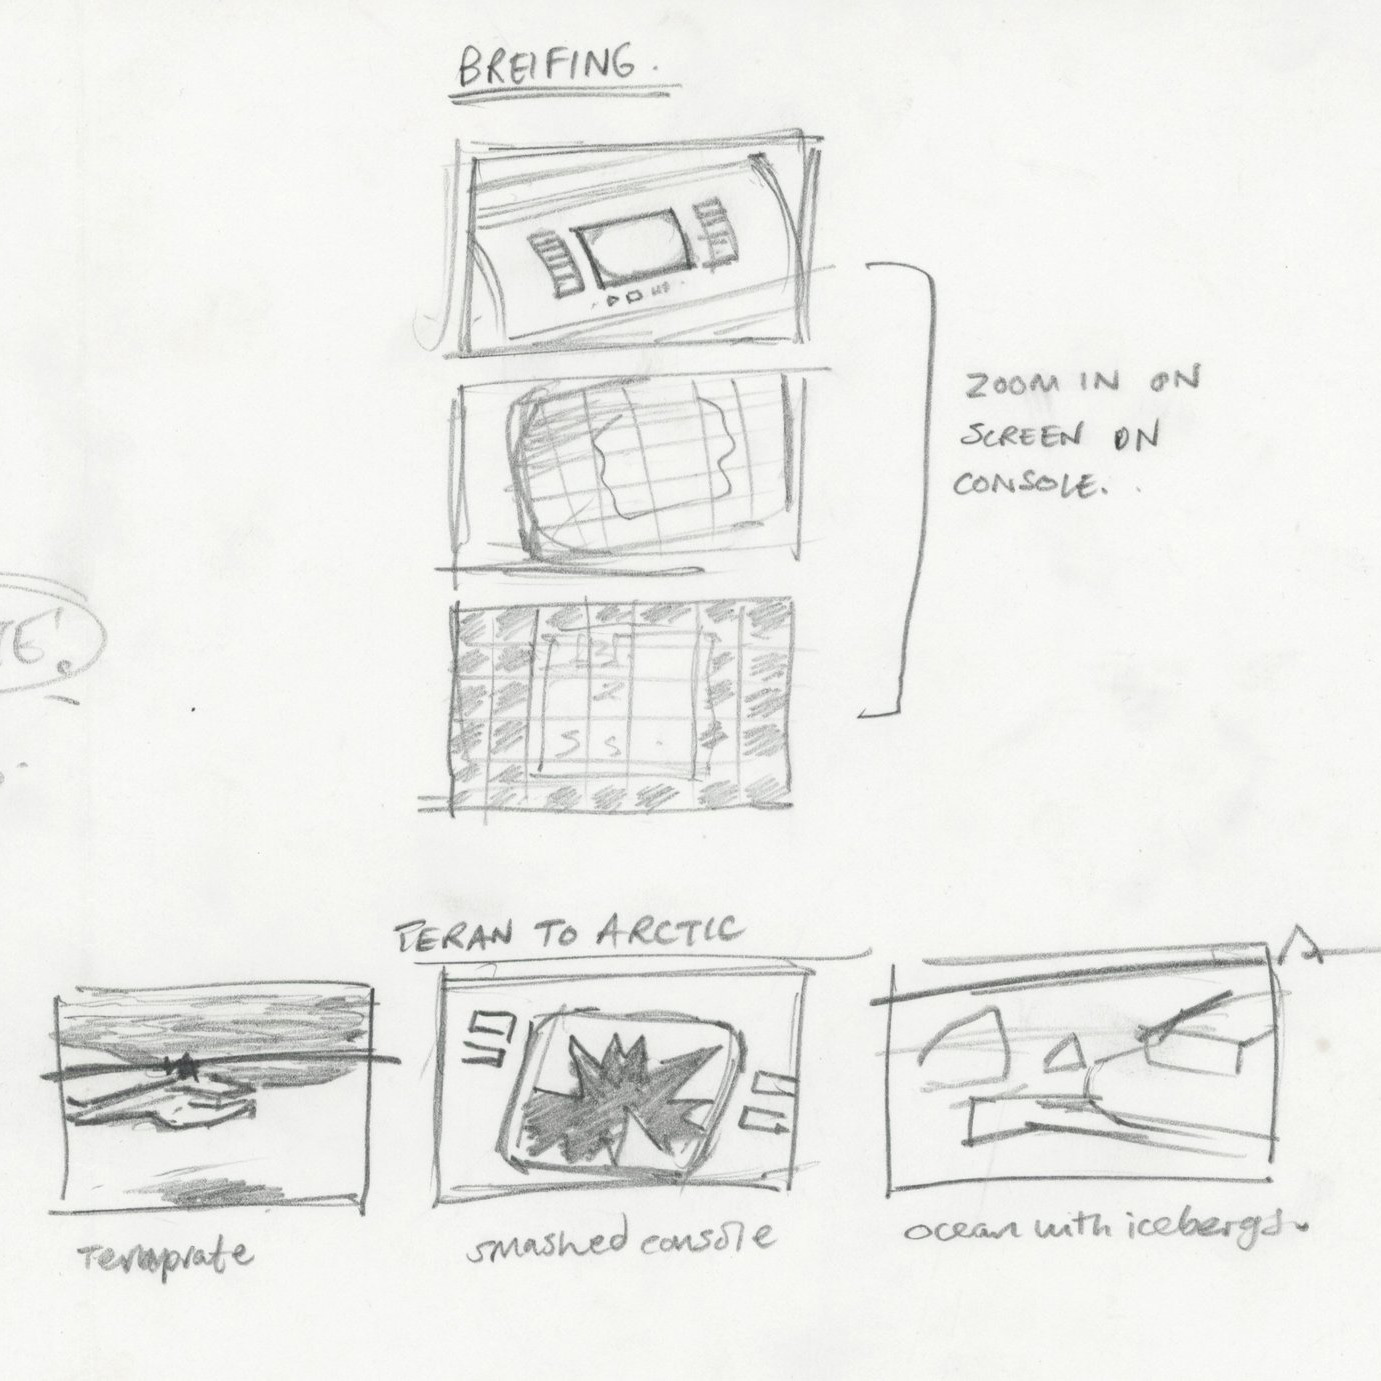 BREIFING.
ZOOM IN ON
SCREEN ON
CONSOLE.
TERAN TO ARCTIC
Temprate
smashed console
ocean with icebergs.